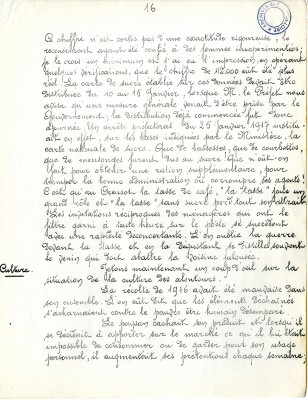 16
Ce chiffre n'est certes pas d'une exactitude rigoureuse, le
recensement ayant été confié à des femmes inexpérimentées;
je le crois un minimum et j'ai eu l'impression, en opérant
quelques vérifications, que le chiffre de 42.000 eût été plus
réel. La carte de sucre établie sur ces données devait être
distribuée du 10 au 15 Janvier, lorsque M. le Préfet nous
avisa qu'une mesure générale venait d'être prise par le
Gouvernement; la distribution déjà commencée fut donc
ajournée. Un arrêté préfectoral du 25 Janvier 1917 institu-
ait en effet, sur les bases indiquées par le Ministère, la
carte normale de sucre. Que de bassesses, que de courbettes,
que de mensonges furent dus au sucre! Que n'eût-on
fait pour obtenir une ration supplémentaire, pour
tromper la bonne administration ou corrompre ses agents!
C'est qu'au Creusot la tasse de café, "la tasse" joue un
grand rôle et "la tasse" sans sucre perd tout son attrait.
Les invitations réciproques des ménagères qui ont le
filtre garni à toute heure sur le poêle se succèdent
avec une rapidité déconcertante. Et on oublie la guerre
devant la tasse et en la dégustant se distille souvent
le venin qui doit abattre la voisine jalousée.
Culture. Jetons maintenant un coup d'oeil sur la
situation de la culture des alentours.
La récolte de 1916 avait été mauvaise dans
son ensemble. L'on eût dit que les éléments déchaînés
s'acharnaient contre la pauvre humaine désemparée.
Le paysan cachait son produit et lorsqu'il
se décidait à apporter sur le marché ce qu'il lui était
impossible de consommer ou de garder pour son usage
personnel, il augmentait ses prétentions chaque semaine,